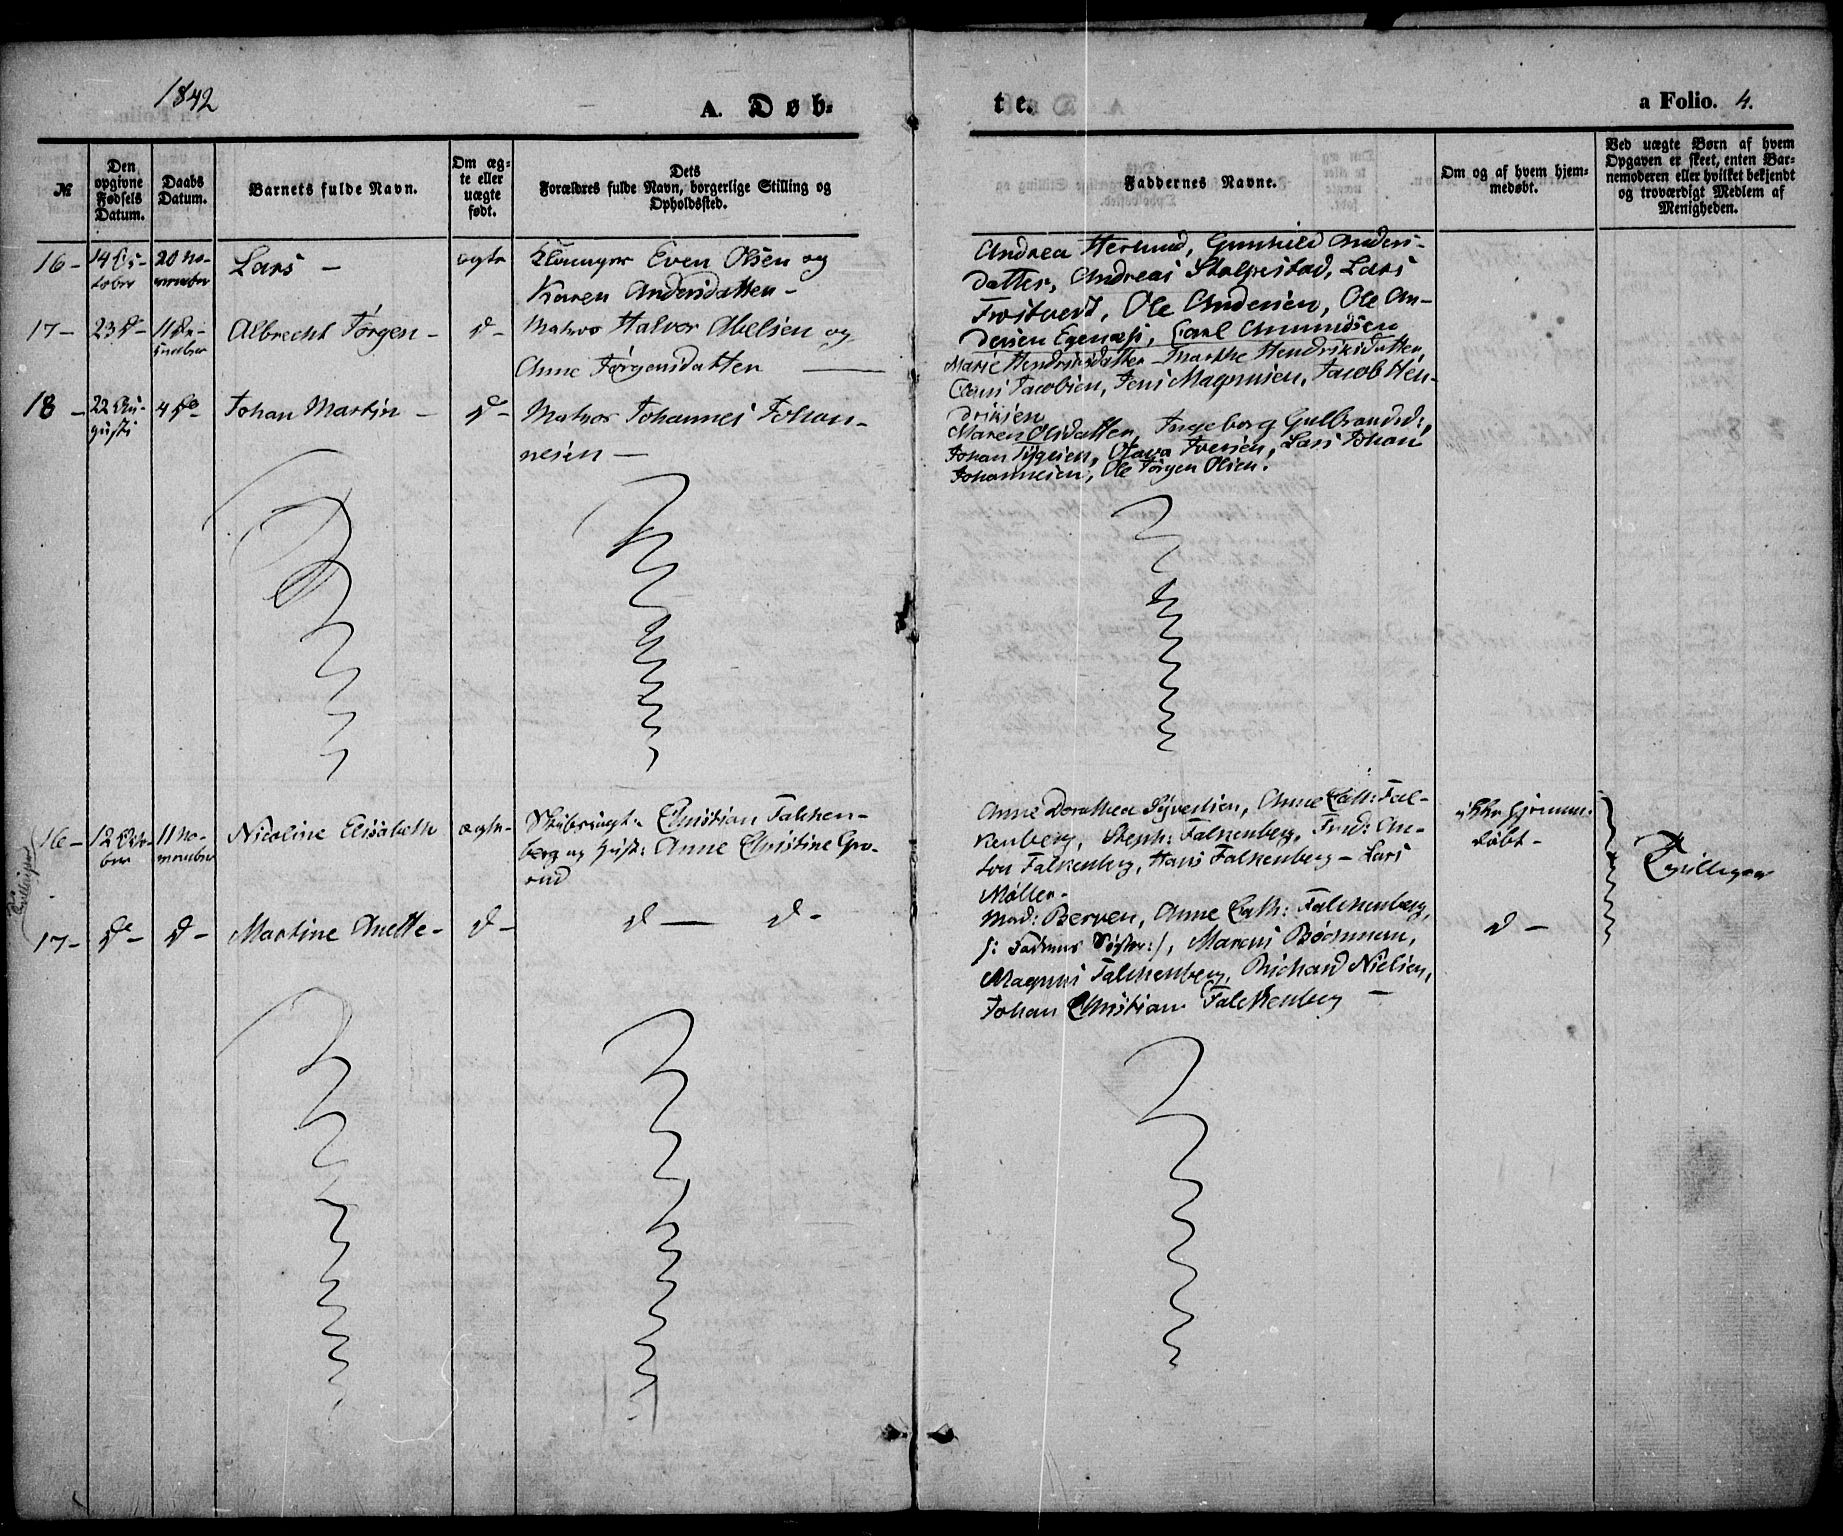 1842
A. Døb-
te.
a Folio. 4.
№
Den opgivne Fødsels Datum.
Daabs Datum.
Barnets fulde Navn.
Om æg-
te eller
uægte
født.
Dets
Forældres fulde Navn, borgerlige Stilling og
Opholdssted.
Faddernes Navne.
Om og af hvem hjem-
medøbt.
Ved uægte Børn af hvem
Opgaven er skeet, enten Bar-
nemoderen eller hvilket bekjendt
og troværdigt Medlem af
Menigheden.
16-
14 Oc-
tober
20 No-
vember
Lars -
ægte
Even Olsen og
Karen Andersdatter -
Andrea Herlund, Gunhild Anders-
datter, Andreas Stalpestad, Lars
Trostvedt, Ole Andersen, Ole An-
dersen Egenæs, Carl Amundsen
17-
23 d-
11 De-
cember
Albrecht Jørgen -
d-
Matros Halvor Abelsen og
Anne Jørgensdatter
Marie Hendriksdatter - Marthe Hendriksdatter
Claus Jacobsen, Jens Magnusen, Jacob Hen-
driksen
18 -
22 Au-
gusti
4 do
Johan Martin -
d-
Matros Johannes Johan-
nesen -
Maren Olsdatter, Ingeborg Gulbrandsd:,
Johan, Iversen, Lars Johan
Johannesen, Ole Jørgen Olsen.
Tvillinger
16-
12 Octo-
ber
11 No-
vember
Nicoline Elisabeth
ægte-
Christian Falken-
berg og Hust: Anne Christine Gro-
rud
Anne Dorothea Syvertsen, Anne Cath: Fal-
kenberg, Steph: Falkenberg, Fred: An-
ton Falkenberg, Hans Falkenberg - Lars
Møller.
ikke hjemme-
døbt -
Tvillinger
17-
d-
d-
Martine Anette-
d-
d - d -
Mad: Berven, Anne Cath: Falckenberg,
/: Faderens Søster:/, Marcus Bockmann,
Magnus Falckenberg, Richard Nielsen,
Johan Christian Falckenberg -
d -